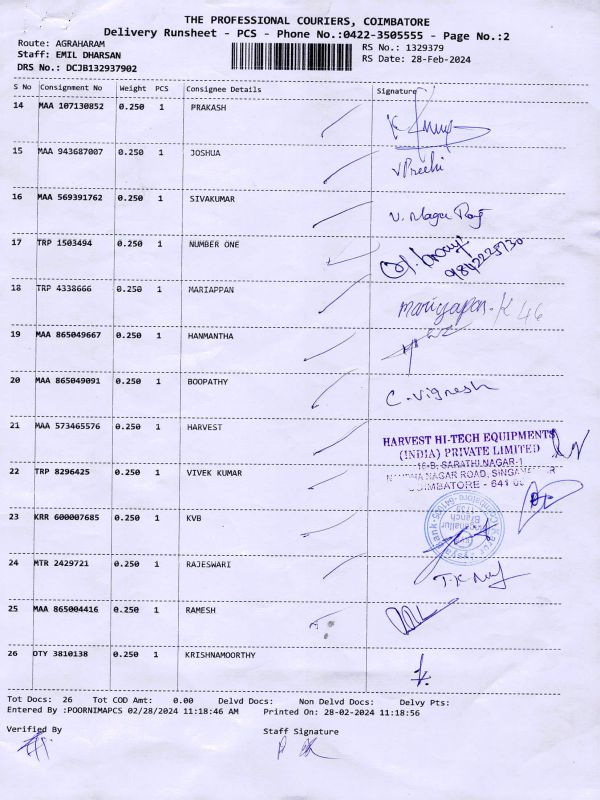 THE PROFESSIONAL COURIERS, COIMBATORE
Delivery Runsheet - PCS - Phone No.:0422-3505555 - Page No.:2
Route: AGRAHARAM
Staff: EMIL DHARSAN
DRS No.: DCJB132937902
RS No.: 1329379
RS Date: 28-Feb-2024
S No Consignment No Weight PCS Consignee Details Signature
14 MAA 107130852 0.250 1 PRAKASH
15 MAA 943687007 0.250 1 JOSHUA V Preethi
16 MAA 569391762 0.250 1 SIVAKUMAR
17 TRP 1503494 0.250 1 NUMBER ONE
18 TRP 4338666 0.250 1 MARIAPPAN mariyapan.K 46
19 MAA 865049667 0.250 1 HANMANTHA
20 MAA 865049091 0.250 1 BOOPATHY C. Vignesh
21 MAA 573465576 0.250 1 HARVEST
HARVEST HI-TECH EQUIPMENTS
(INDIA) PRIVATE LIMITED
16-B, SARATHI NAGAR-1
NAGAR ROAD,
COIMBATORE - 641
22 TRP 8296425 0.250 1 VIVEK KUMAR
23 KRR 600007685 0.250 1 KVB
Branch
24 MTR 2429721 0.250 1 RAJESWARI
25 MAA 865004416 0.250 1 RAMESH
26 DTY 3810138 0.250 1 KRISHNAMOORTHY
Tot Docs: 26 Tot COD Amt: 0.00 Delvd Docs: Non Delvd Docs: Delvy Pts:
Entered By :POORNIMAPCS 02/28/2024 11:18:46 AM Printed On: 28-02-2024 11:18:56
Verified By Staff Signature